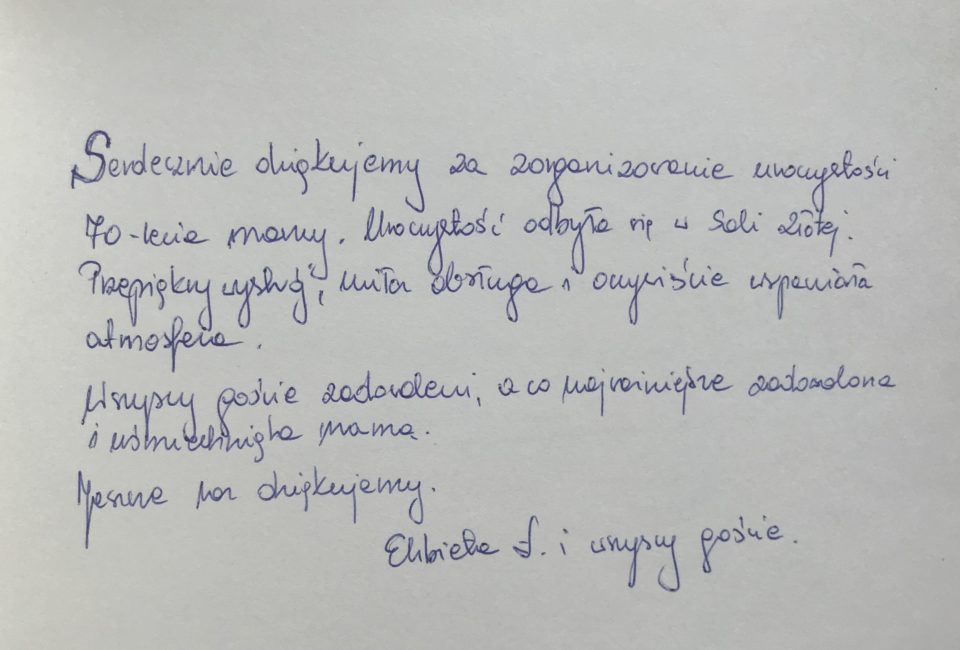 Serdecznie dziękujemy za zorganizowanie uroczystości
70-lecia mamy. Uroczystość odbyła się w Sali Złotej.
Przepiękny wystrój, miła obsługa i oczywiście wspaniała
atmosfera.
Wszyscy goście zadowoleni, a co najważniejsze zadowolona
i uśmiechnięta mama.
Jeszcze raz dziękujemy.
Elżbieta S. i wszyscy goście.